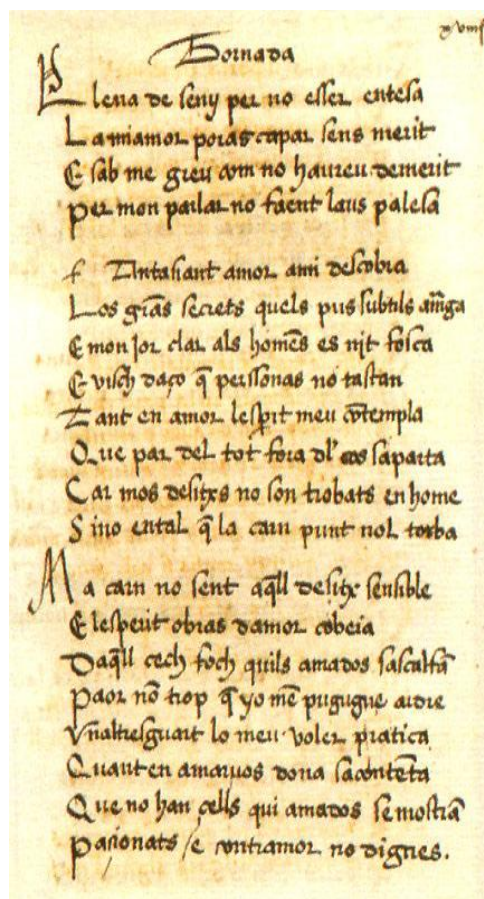 Tornada
Llena de seny per no esser entesa
La miamor poras capar sens merit
E sab me greu com no haureu demerit
Per mon parlar no faent laus palesa
f Antasiant amor ami descobra
Los grãs secrets quels pus subtils amãga
E mon jor clar als homẽs es nit fosca
E visch daço q̃ perssonas no tastan
Tant en amor lesprit meu cõtempla
Que par del tot fora dl cos saparta
Car mos desitxs no son trobats en home
Sino ental q̃ la carn punt nol torba
Ma carn no sent aq̃ll desitx sensible
E lesperit obras damor cobeia
Daq̃ll cech foch quils amados sascalfã
Paor nõ trop q̃ yo mẽ pugugue ardre
Vñaltresguart lo meu voler pratica
Quant en amaruos dona sacontẽta
Que no han cells qui amados se mostrã
Pacionats / e contramor no dignes.